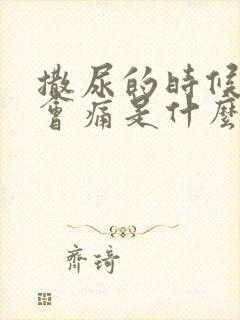 撒尿的時候
會痛是什麼
齊琦